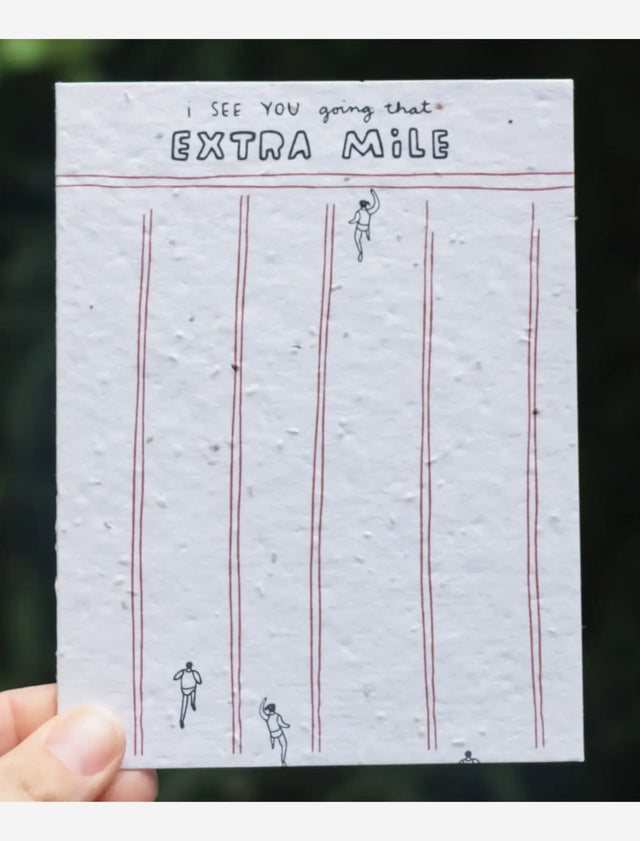 i SEE YOU going that
EXTRA MiLE